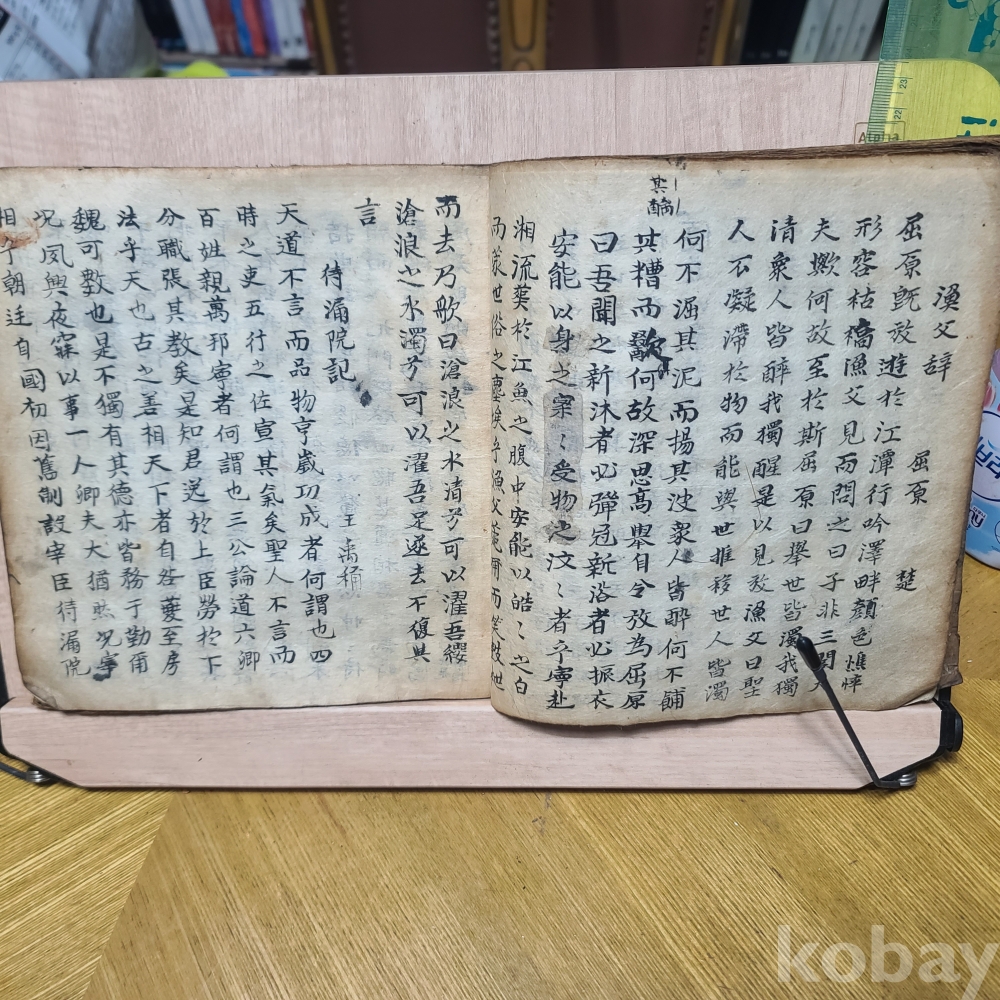 漁父辭 屈原 楚
屈原旣放遊於江潭行吟澤畔顏色憔悴
形容枯槁漁父見而問之曰子非三閭大
夫歟何故至於斯屈原曰擧世皆濁我獨
清衆人皆醉我獨醒是以見放漁父曰聖
人不凝滯於物而能與世推移世人皆濁
何不淈其泥而揚其波衆人皆醉何不餔
其糟而歠何故深思高擧自令放為屈原
其醨
曰吾聞之新沐者必彈冠新浴者必振衣
安能以身之察〻受物之汶〻者乎寧赴
湘流葬於江魚之腹中安能以皓〻之白
而蒙世俗之塵埃乎漁父莞爾而笑鼓枻
而去乃歌曰滄浪之水清兮可以濯吾纓
滄浪之水濁兮可以濯吾足遂去不復與
言
待漏院記 王禹偁
天道不言而品物亨歲功成者何謂也四
時之吏五行之佐宣其氣矣聖人不言而
百姓親萬邦寧者何謂也三公論道六卿
分職張其教矣是知君逸於上臣勞於下
法乎天也古之善相天下者自咎夔至房
魏可數也是不獨有其德亦皆務于勤甬
況夙興夜寐以事一人卿夫大猶然況宰
相乎朝廷自國初因舊制設宰臣待漏院
Alpha
23
22
kobay